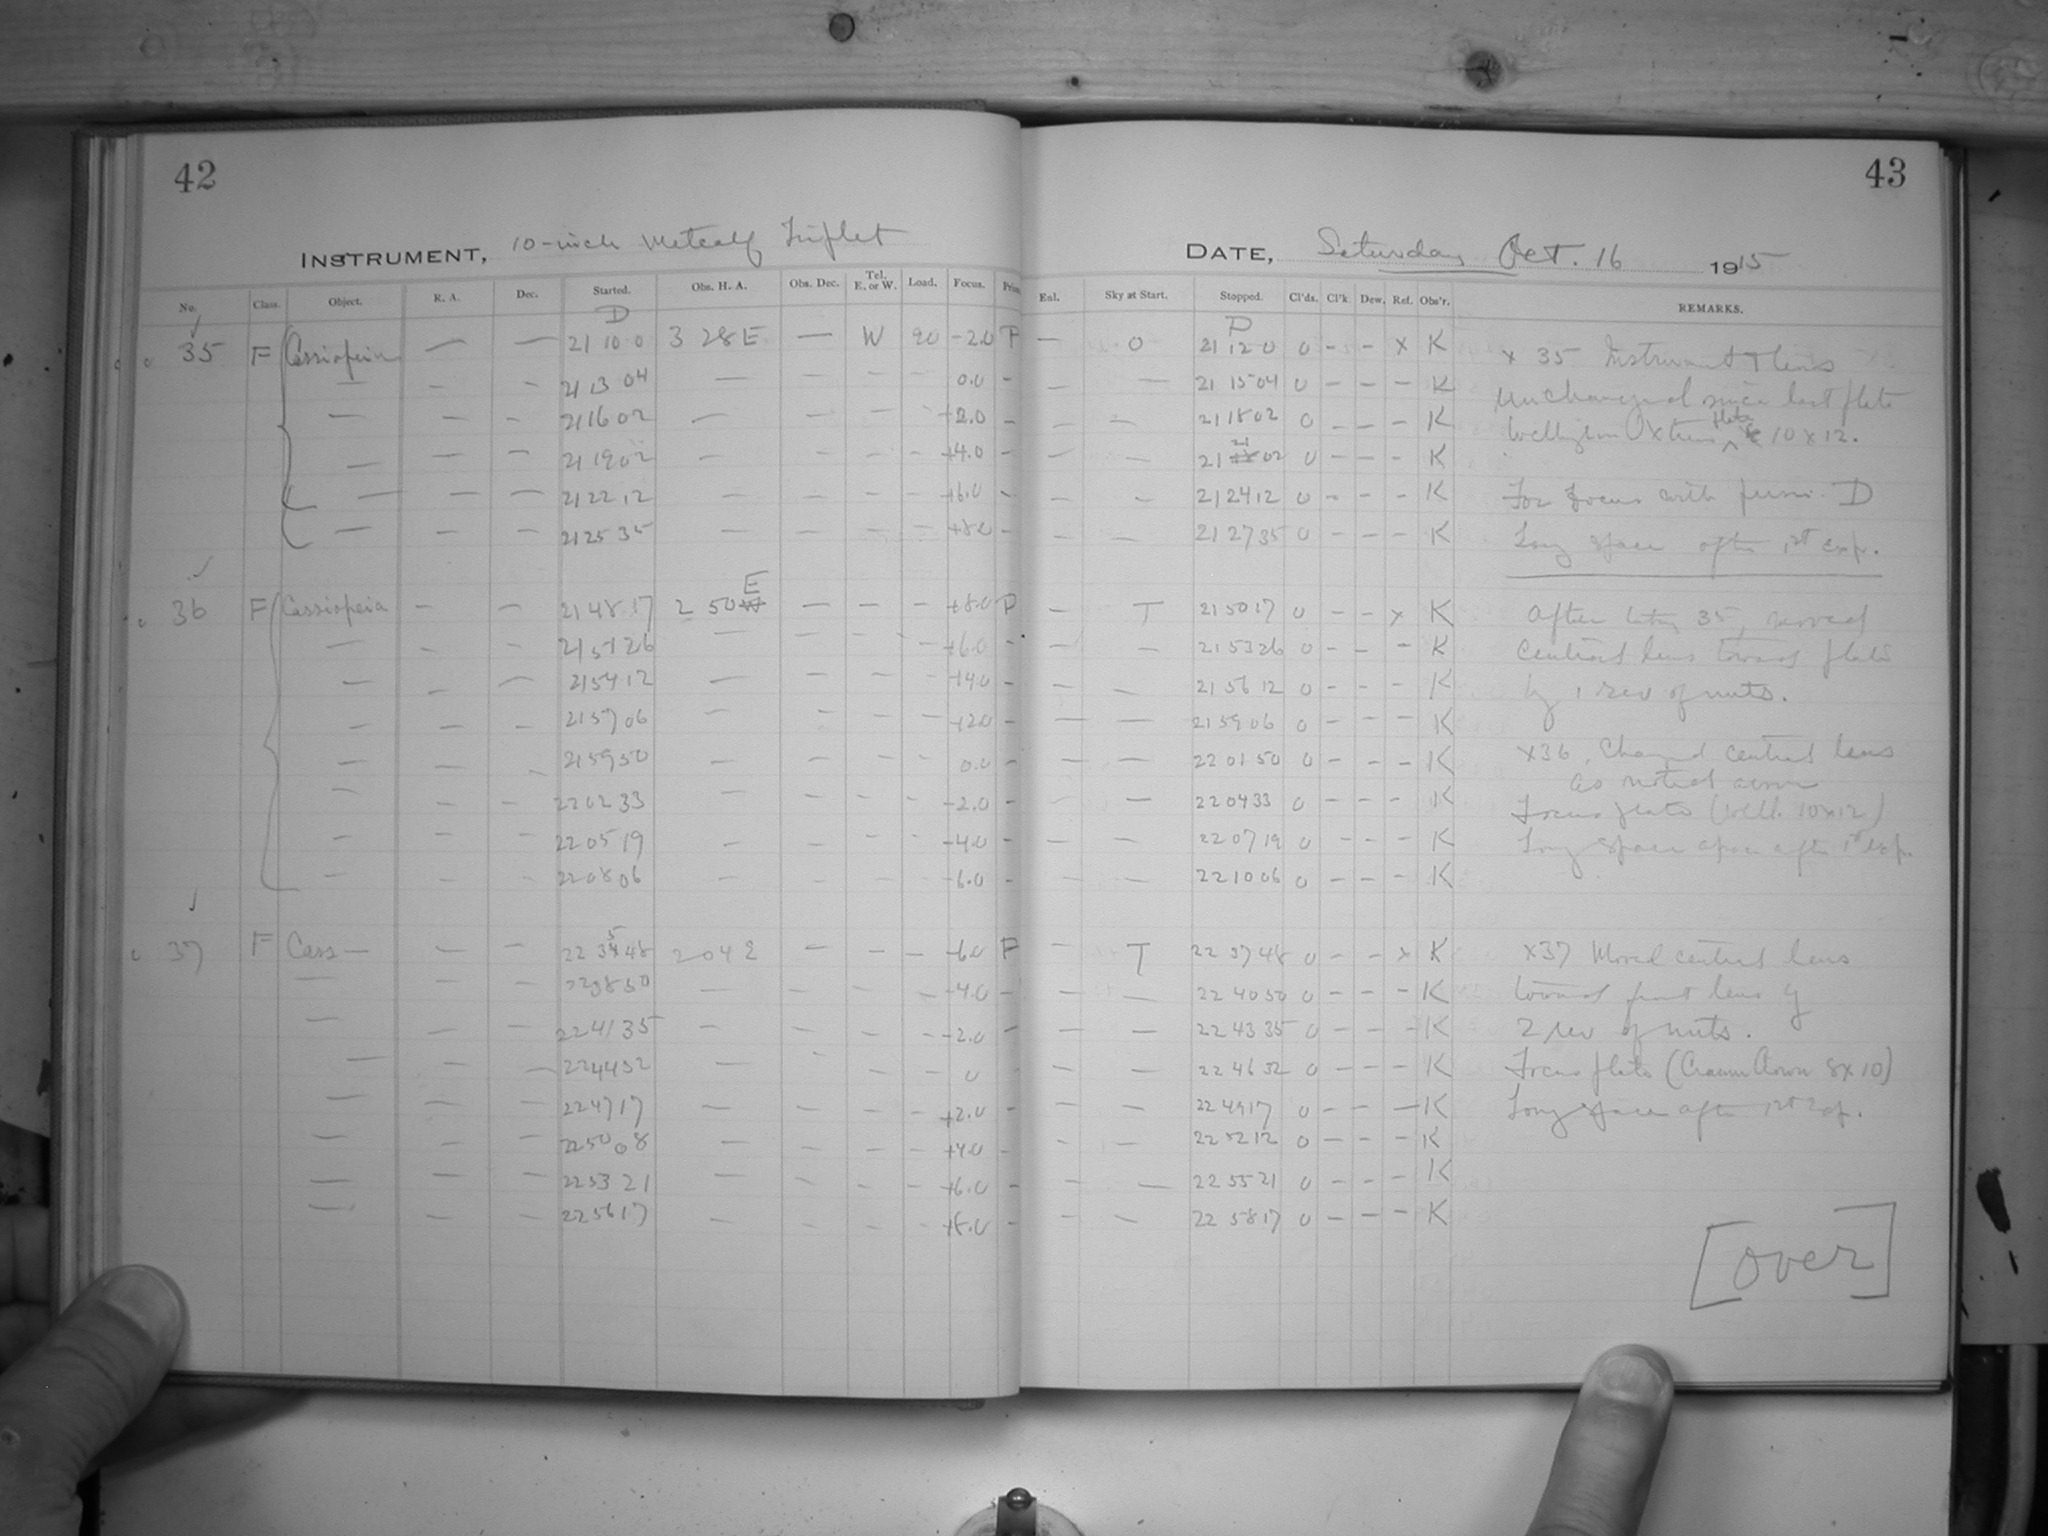 42
INSTRUMENT, 10-inch Metcalf Triplet
No. Class. Object. R. A. Dec. Started. Obs. H. A. Obs. Dec. Tel. E. or W. Load. Focus. Prism
D
35 F Cassiopeia — — 21 10 0 3 28 E — W 90 -2.0 P
— - - 21 13 04 — - - - 0.0 -
— - - 21 16 02 — - - - +2.0 -
— - - 21 19 02 — - - - +4.0 -
— — — 21 22 12 — - - - +6.0 -
— - - 21 25 35 — - - - +8.0 -
E
36 F Cassiopeia - - 21 48 17 2 50 — — - +8.0 P
— - - 21 51 26 — - - - +6.0 -
— - — 21 54 12 — - - - +4.0 -
— - - 21 57 06 — - - - +2.0 -
— - - 21 59 50 — - - - 0.0 -
— - - 22 02 33 — - - - -2.0 -
- - - 22 05 19 - - - - -4.0 -
- - - 22 08 06 - - - - -6.0 -
37 F Cass — - - 22 35 48 2 04 — - - -6.0 P
— 22 38 50 — - - - -4.0 -
— - - 22 41 35 - - - - -2.0 -
— - - 22 44 32 — - - - 0
— — - 22 47 17 — - - - +2.0 -
— - - 22 50 08 — - - - +4.0 -
— - - 22 53 21 — - - - +6.0 -
— - - 22 56 17 - - - - +8.0 -
43
DATE, Saturday Oct. 16 1915
Enl. Sky at Start. Stopped. Cl'ds. Cl'k. Dew. Ref. Obs'r. REMARKS.
D
— 0 21 12 0 0 - - x K
- — 21 15 04 0 - - - K
- - 21 18 02 0 - - - K
21
- - 21 02 0 - - - K
- - 21 24 12 0 - - - K
- - 21 27 35 0 - - - K
- T 21 50 17 0 - - x K
- - 21 53 26 0 - - - K
- - 21 56 12 0 - - - K
— — 21 59 06 0 - - - K
- - 22 01 50 0 - - - K
- — 22 04 33 0 - - - K
- - 22 07 19 0 - - - K
- - 22 10 06 0 - - - K
- T 22 37 48 0 - - x K
- - 22 40 50 0 - - - K
- — 22 43 35 0 - - - K
- - 22 46 32 0 - - - K
- - 22 49 17 0 - - — K
- - 22 52 12 0 - - - K
- — 22 55 21 0 - - - K
- - 22 58 17 0 - - - K
x 35 Instrument & lens
unchanged since last plate
plate
Wellington Xtreme 10 x 12.
For focus with prism. D
Long space after 1st exp.
After taking 35, moved
central lens toward plate
by 1 rev of nuts.
x36. Changed central lens
as noted above
Focus plate (Well. 10x12)
Long space after 1st exp.
x37 Moved central lens
toward front lens by
2 rev of nuts.
Focus plate (Cramer Crown 8x10)
Long space after 1st exp.
[over]